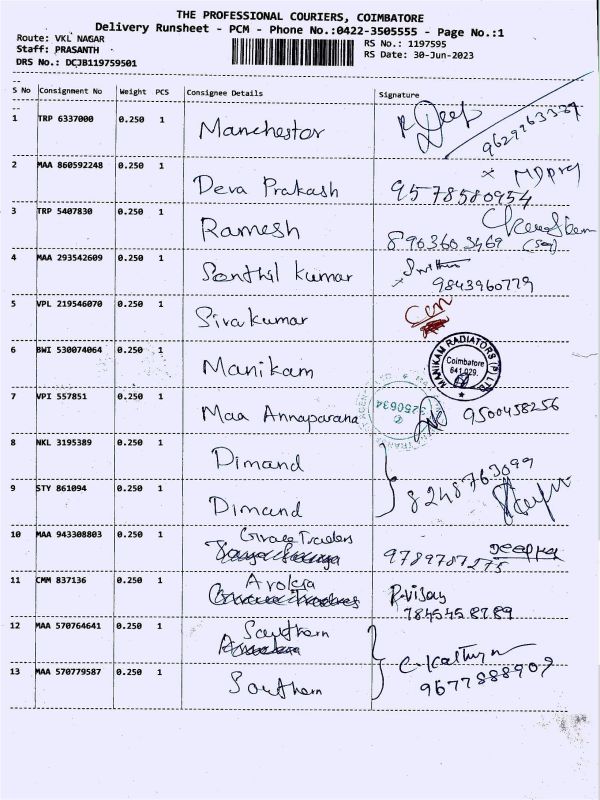 THE PROFESSIONAL COURIERS, COIMBATORE
Delivery Runsheet - PCM - Phone No.:0422-3505555 - Page No.:1
Route: VKL NAGAR RS No.: 1197595
Staff: PRASANTH RS Date: 30-Jun-2023
DRS No.: DCJB119759501
S No Consignment No Weight PCS Consignee Details Signature
1 TRP 6337000 0.250 1 Manchestor
2 MAA 860592248 0.250 1 Deva Prakash 9578580954
3 TRP 5407830 0.250 1 Ramesh 8903603469
4 MAA 293542609 0.250 1 Senthil Kumar 9843960779
5 VPL 219546070 0.250 1 Sivakumar
6 BWI 530074064 0.250 1 Manikam MANIKAM RADIATORS (P) LTD Coimbatore 641 029.
7 VPI 557851 0.250 1 Maa Annaparana 3250634 9500458256
8 NKL 3195389 0.250 1 Dimand
9 STY 861094 0.250 1 Dimand 8248763099
10 MAA 943308803 0.250 1 Grace Traders 9789787275
11 CMM 837136 0.250 1 Arokia R.vijay
7845458789
12 MAA 570764641 0.250 1 Southern
13 MAA 570779587 0.250 1 Southern 9677888909